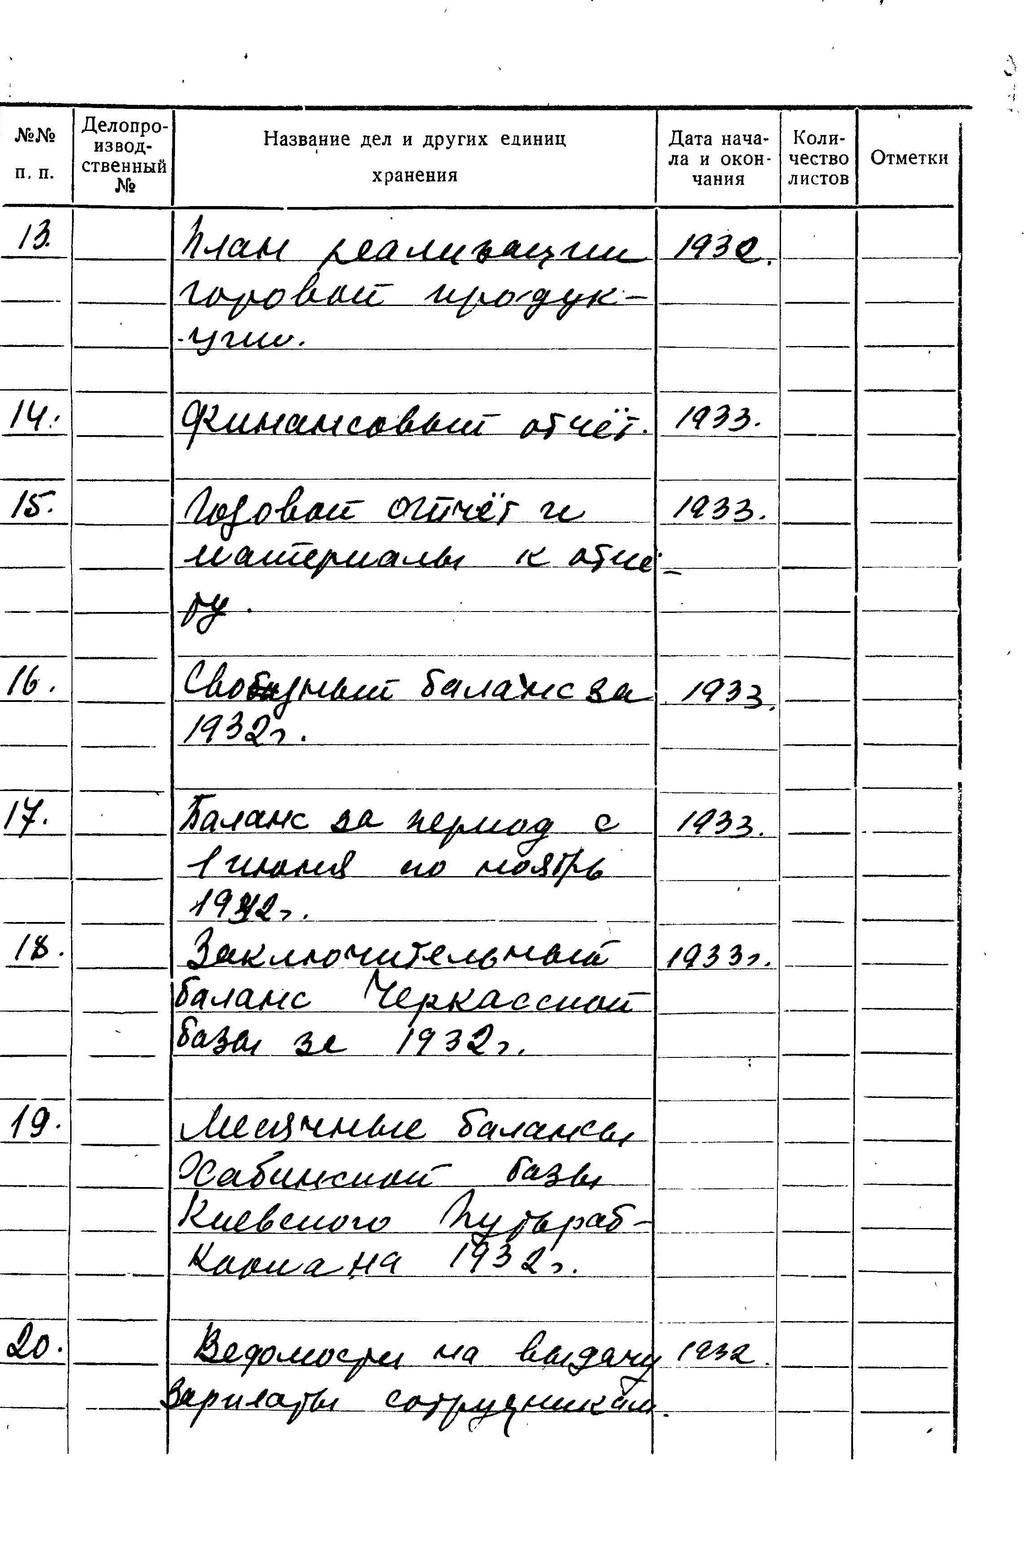 №№ п. п.
Делопро-
извод-
ственный
№
Название дел и других единиц
хранения
Дата нача-
ла и окон-
чания
Коли-
чество
листов
Отметки
13. План реализации 1932.
горовой продук-
-ции.
14. Финансовый отчёт. 1933.
15. Годовой отчёт и 1933.
материалы к отчё-
ту.
16. Свободный баланс за 1933.
1932г.
17. Баланс за период с 1933.
1 июня по ноябрь
1932г.
18. Заключительный 1933г.
баланс Черкасской
базы за 1932г.
19. Месячные балансы
Хабинской базы
Киевского
на 1932г.
20. Ведомости на выдачу 1932.
зарплаты сотрудникам.